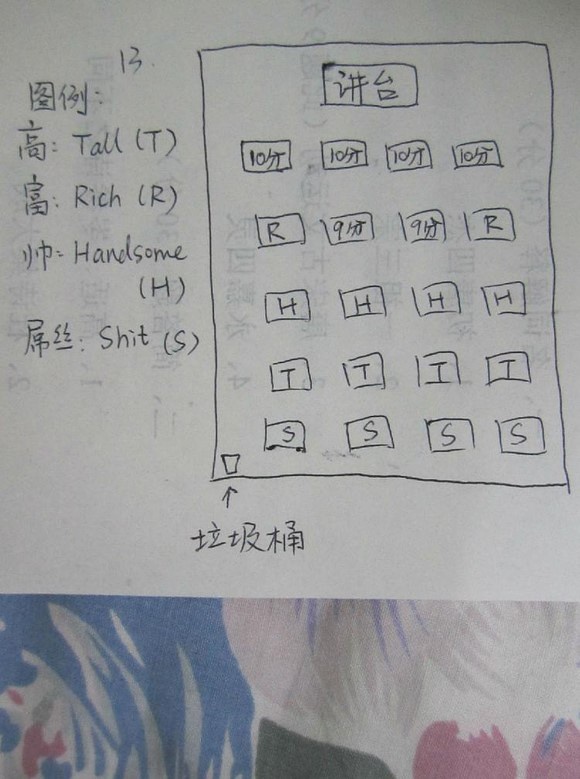 13.
图例:
高: Tall (T)
富: Rich (R)
帅: Handsome
(H)
屌丝: Shit (S)
讲台
10分 10分 10分 10分
R 9分 9分 R
H H H H
T T T T
S S S S
↑
垃圾桶